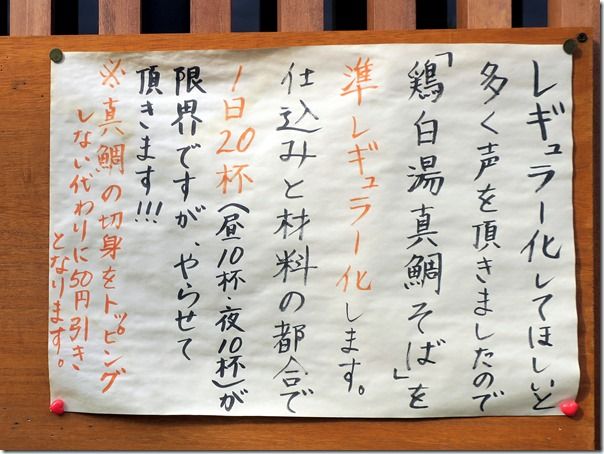 レギュラー化してほしいと
多く声を頂きましたので
「鶏白湯真鯛そば」を
準レギュラー化します。
仕込みと材料の都合で
1日20杯(昼10杯・夜10杯)が
限界ですが、やらせて
頂きます!!!
※真鯛の切身をトッピング
しない代わりに50円引き
となります。